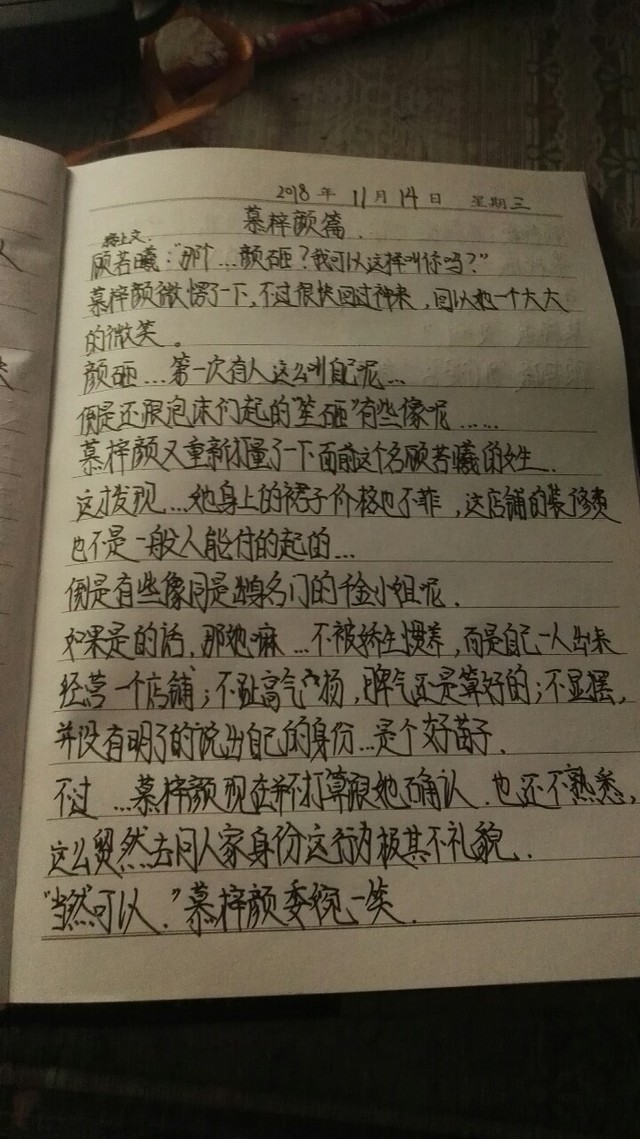 2018年 11月 14日 星期三
慕梓颜篇.
接上文.
顾若曦:"那个...颜砸?我可以这样叫你吗?"
慕梓颜微愣了一下,不过很快回过神来,回以她一个大大
的微笑。
颜砸...第一次有人这么叫自己呢...
倒是还跟泡沫们起的"笙砸"有些像呢......
慕梓颜又重新打量了一下面前这个名顾若曦的女生.
这才发现...她身上的裙子价格也不菲,这店铺的装修费
也不是一般人能付的起的...
倒是有些像同是出身名门的千金小姐呢.
如果是的话,那她嘛...不被娇生惯养,而是自己一人出来
经营一个店铺;不趾高气扬,脾气还是算好的;不显摆,
并没有明了的说出自己的身份...是个好苗子.
不过...慕梓颜现在并不打算跟她确认.也还不熟悉,
这么贸然去问人家身份这行为极其不礼貌.
"当然可以."慕梓颜委婉一笑.